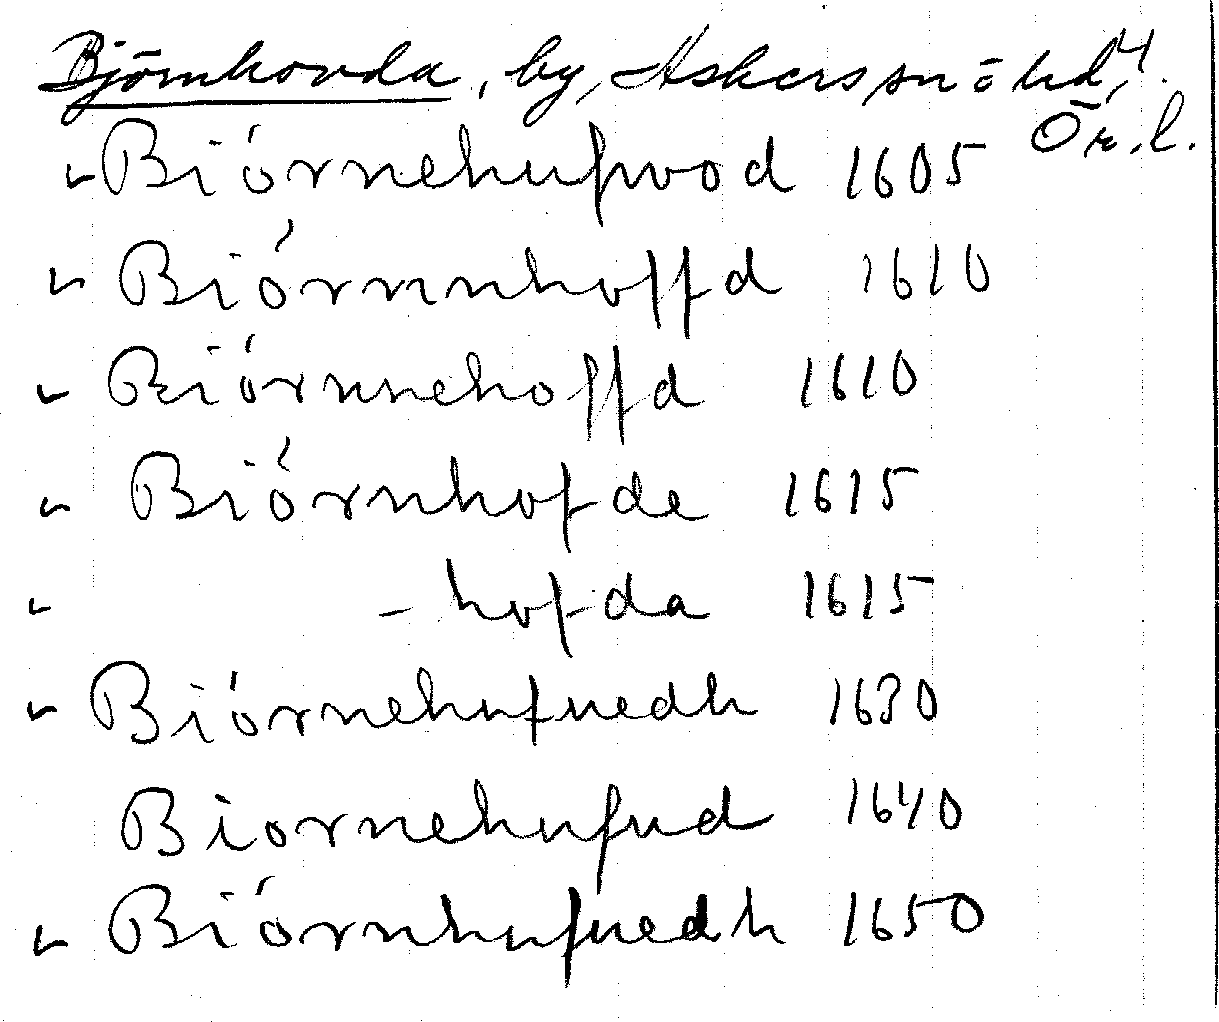 Björnhovda, by, Askers sn ö hd, 4.
Ör. l.
Biórnehufwod 1605
Biórnnhoffd 1610
Biórnnehoffd 1610
Biórnhofde 1615
- hofda 1615
Biórnehufuedh 1630
Biornehufud 1640
Biórnhufuedh 1650